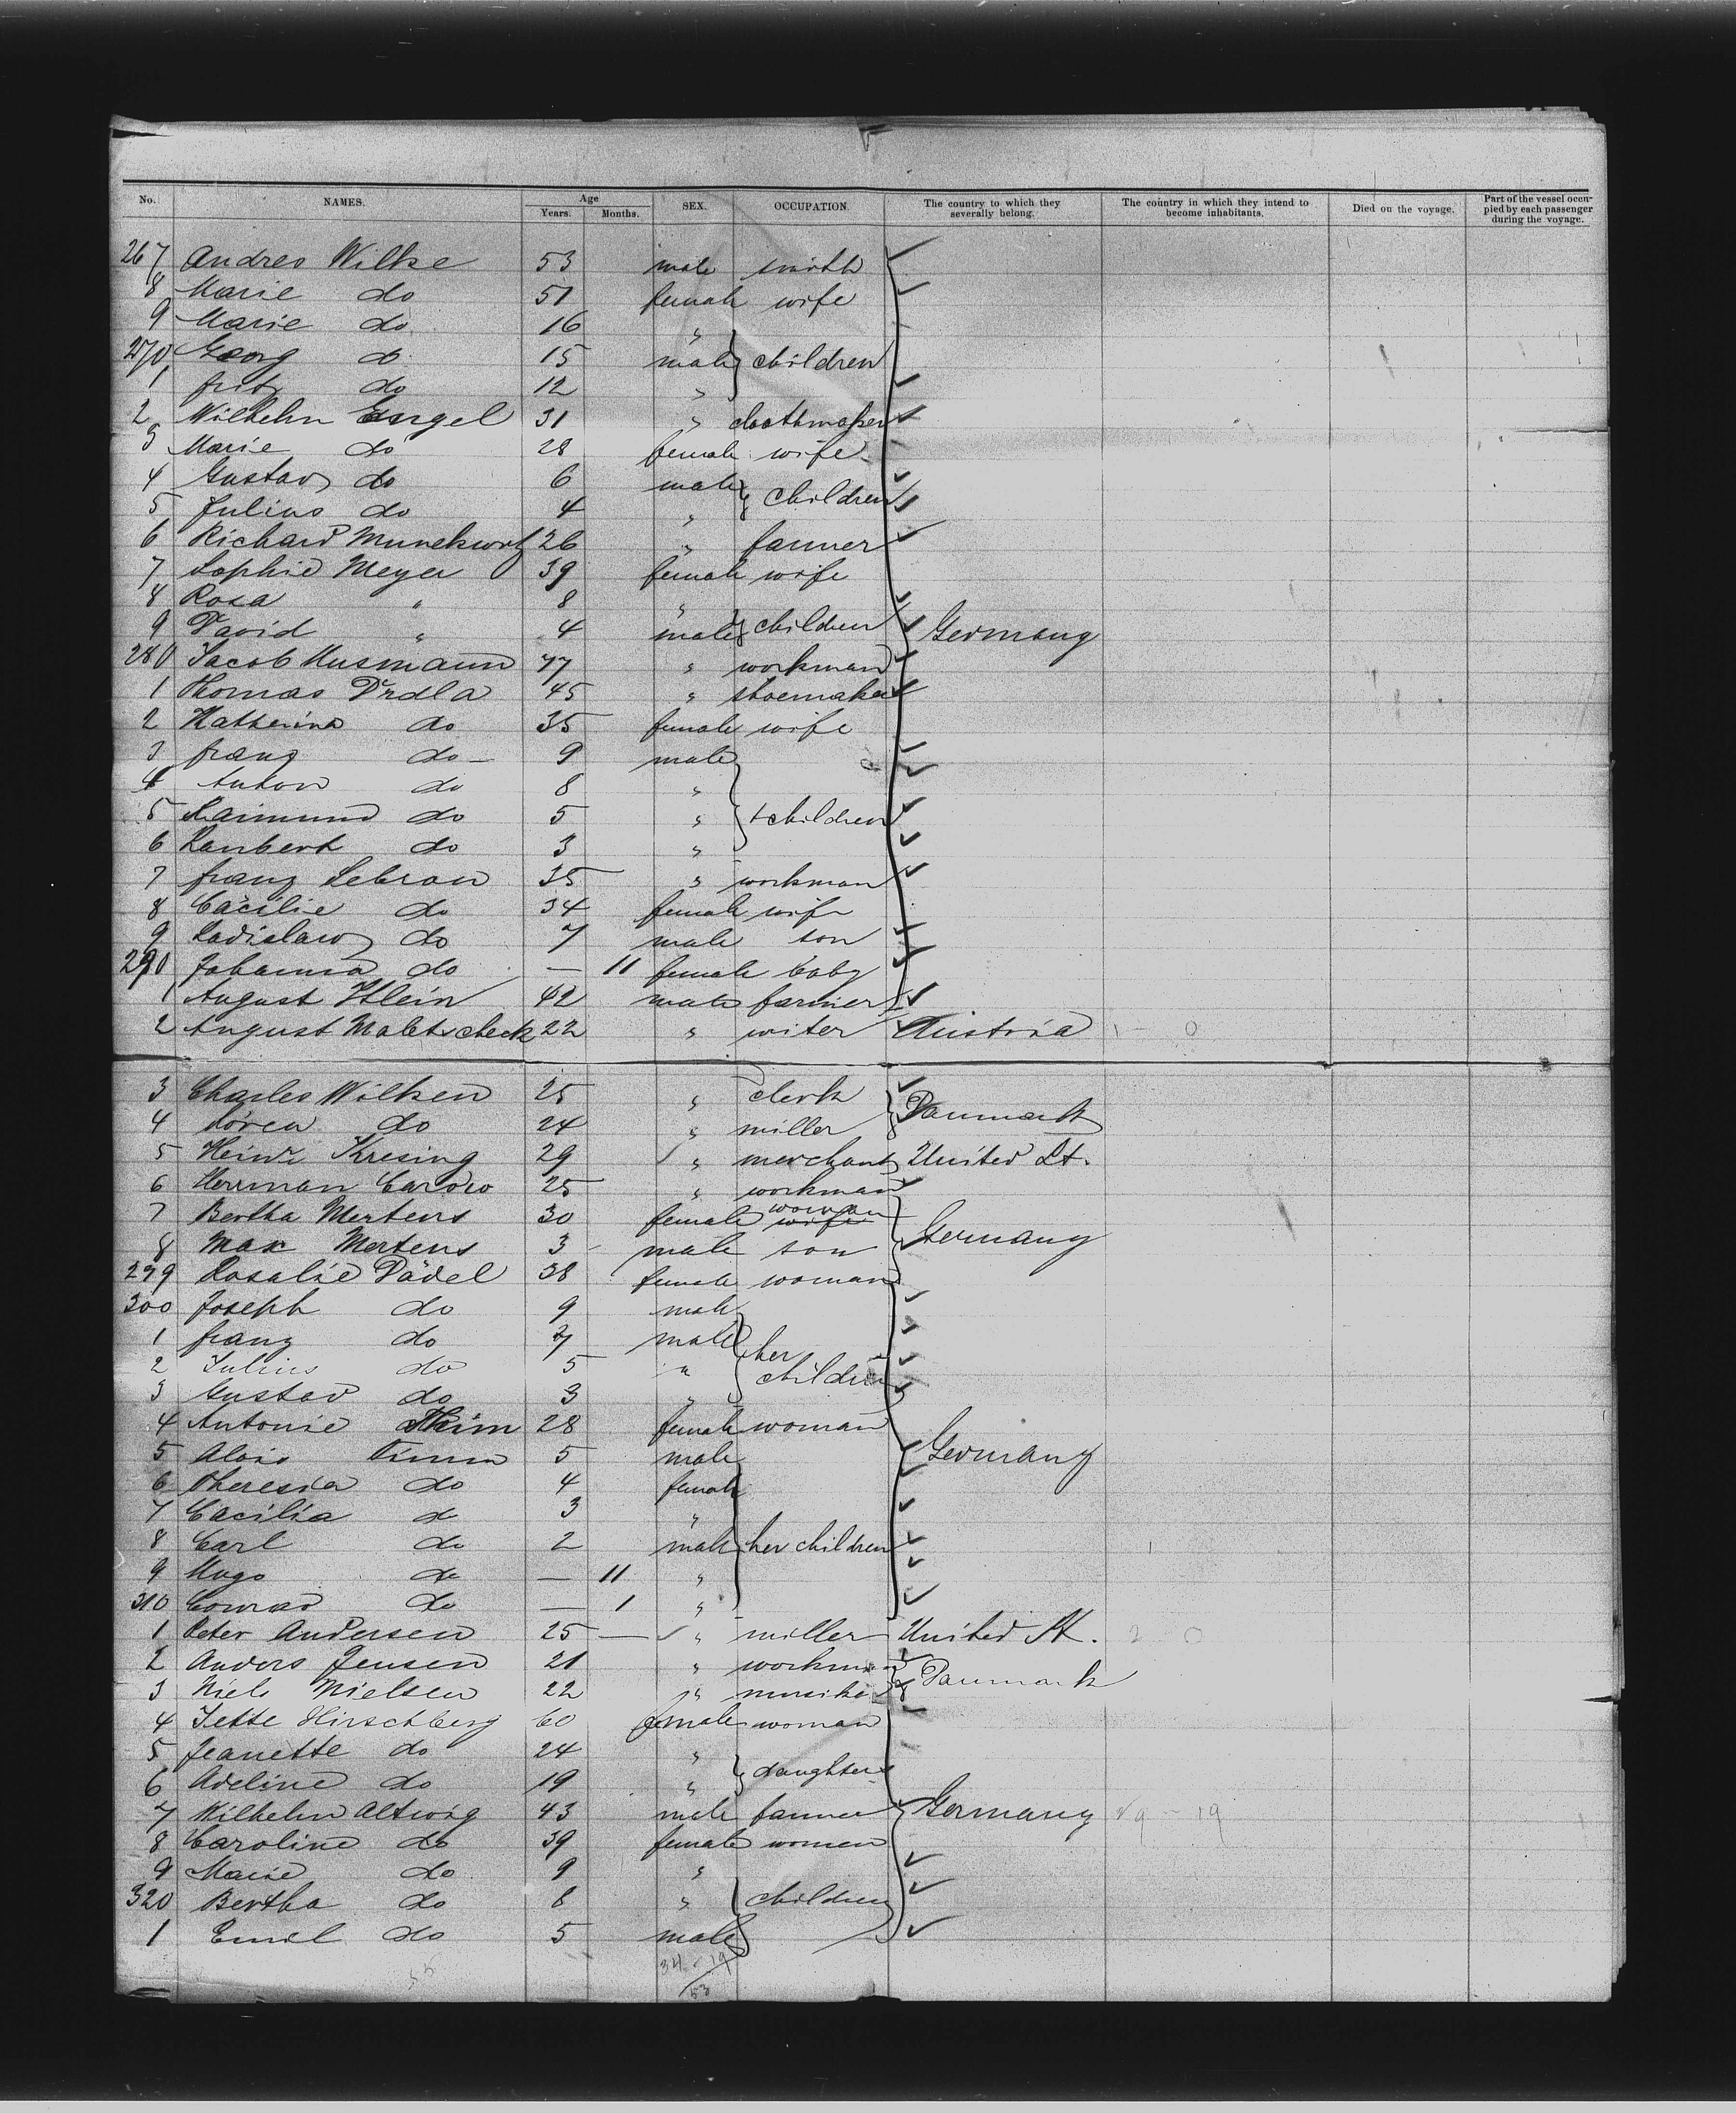 No. NAMES. Age Years. Months. SEX. OCCUPATION. The country to which they severally belong. The country in which they intend to become inhabitants. Died on the voyage. Part of the vessel occupied by each passenger during the voyage.
267 Andres Wilke 53 male smith
8 Marie do 51 female wife
9 Marie do 16 "
270 Georg do 15 male children
1 Fritz do 12 "
2 Wilhelm Engel 31 " cloothmaker
3 Marie do 28 female wife
4 Gustav do 6 male children
5 Julius do 4 "
6 Richard 26 " farmer
7 Sophie Meyer 39 female wife
8 Rosa " 8 "
9 David " 4 male children Germany
280 Jacob Husmann 77 " workman
1 Thomas Drdla 45 " shoemaker
2 Katherina do 35 female wife
3 franz do 9 male
4 Anton do 8 "
5 Raimund do 5 " children
6 Lambert do 3 "
7 franz Lebron 35 " workman
8 Cäcilie do 34 female wife
9 Ladislaw do 7 male son
290 Johanna do — 11 female baby
1 August Klein 42 male farmer
2 August Maletscheck 22 " writer Austria
3 Charles Wilken 25 " clerk Danmark
4 Sören do 24 " miller
5 Heinr. Kresing 29 " merchant United St.
6 Herrman Carow 25 " workman
7 Bertha Mertens 30 female wife woman Germany
8 Max Mertens 3 male son
299 Rosalie Dädel 38 female woman
300 Joseph do 9 male
1 franz do 7 male her
2 Julius do 5 " children
3 Gustav do 3 "
4 Antonie Thim 28 female woman
5 Alois Timm 5 male Germany
6 Theresia do 4 female
7 Cäcilia do 3 "
8 Carl do 2 male her children
9 Hugo do — 11 "
310 Conrad do — 1 "
1 Peter Andersen 25 — " miller United St. 2 0
2 Anders Jensen 21 " workman Danmark
3 Niels Nielsen 22 "
4 Jette Hirschberg 60 female woman
5 Jeanette do 24 "
6 Adeline do 19 " daughters
7 Wilhelm Altwig 43 male farmer Germany
8 Caroline do 39 female women
9 Marie do 9 "
320 Bertha do 8 " children
1 Emil do 5 male
34 - 19
53